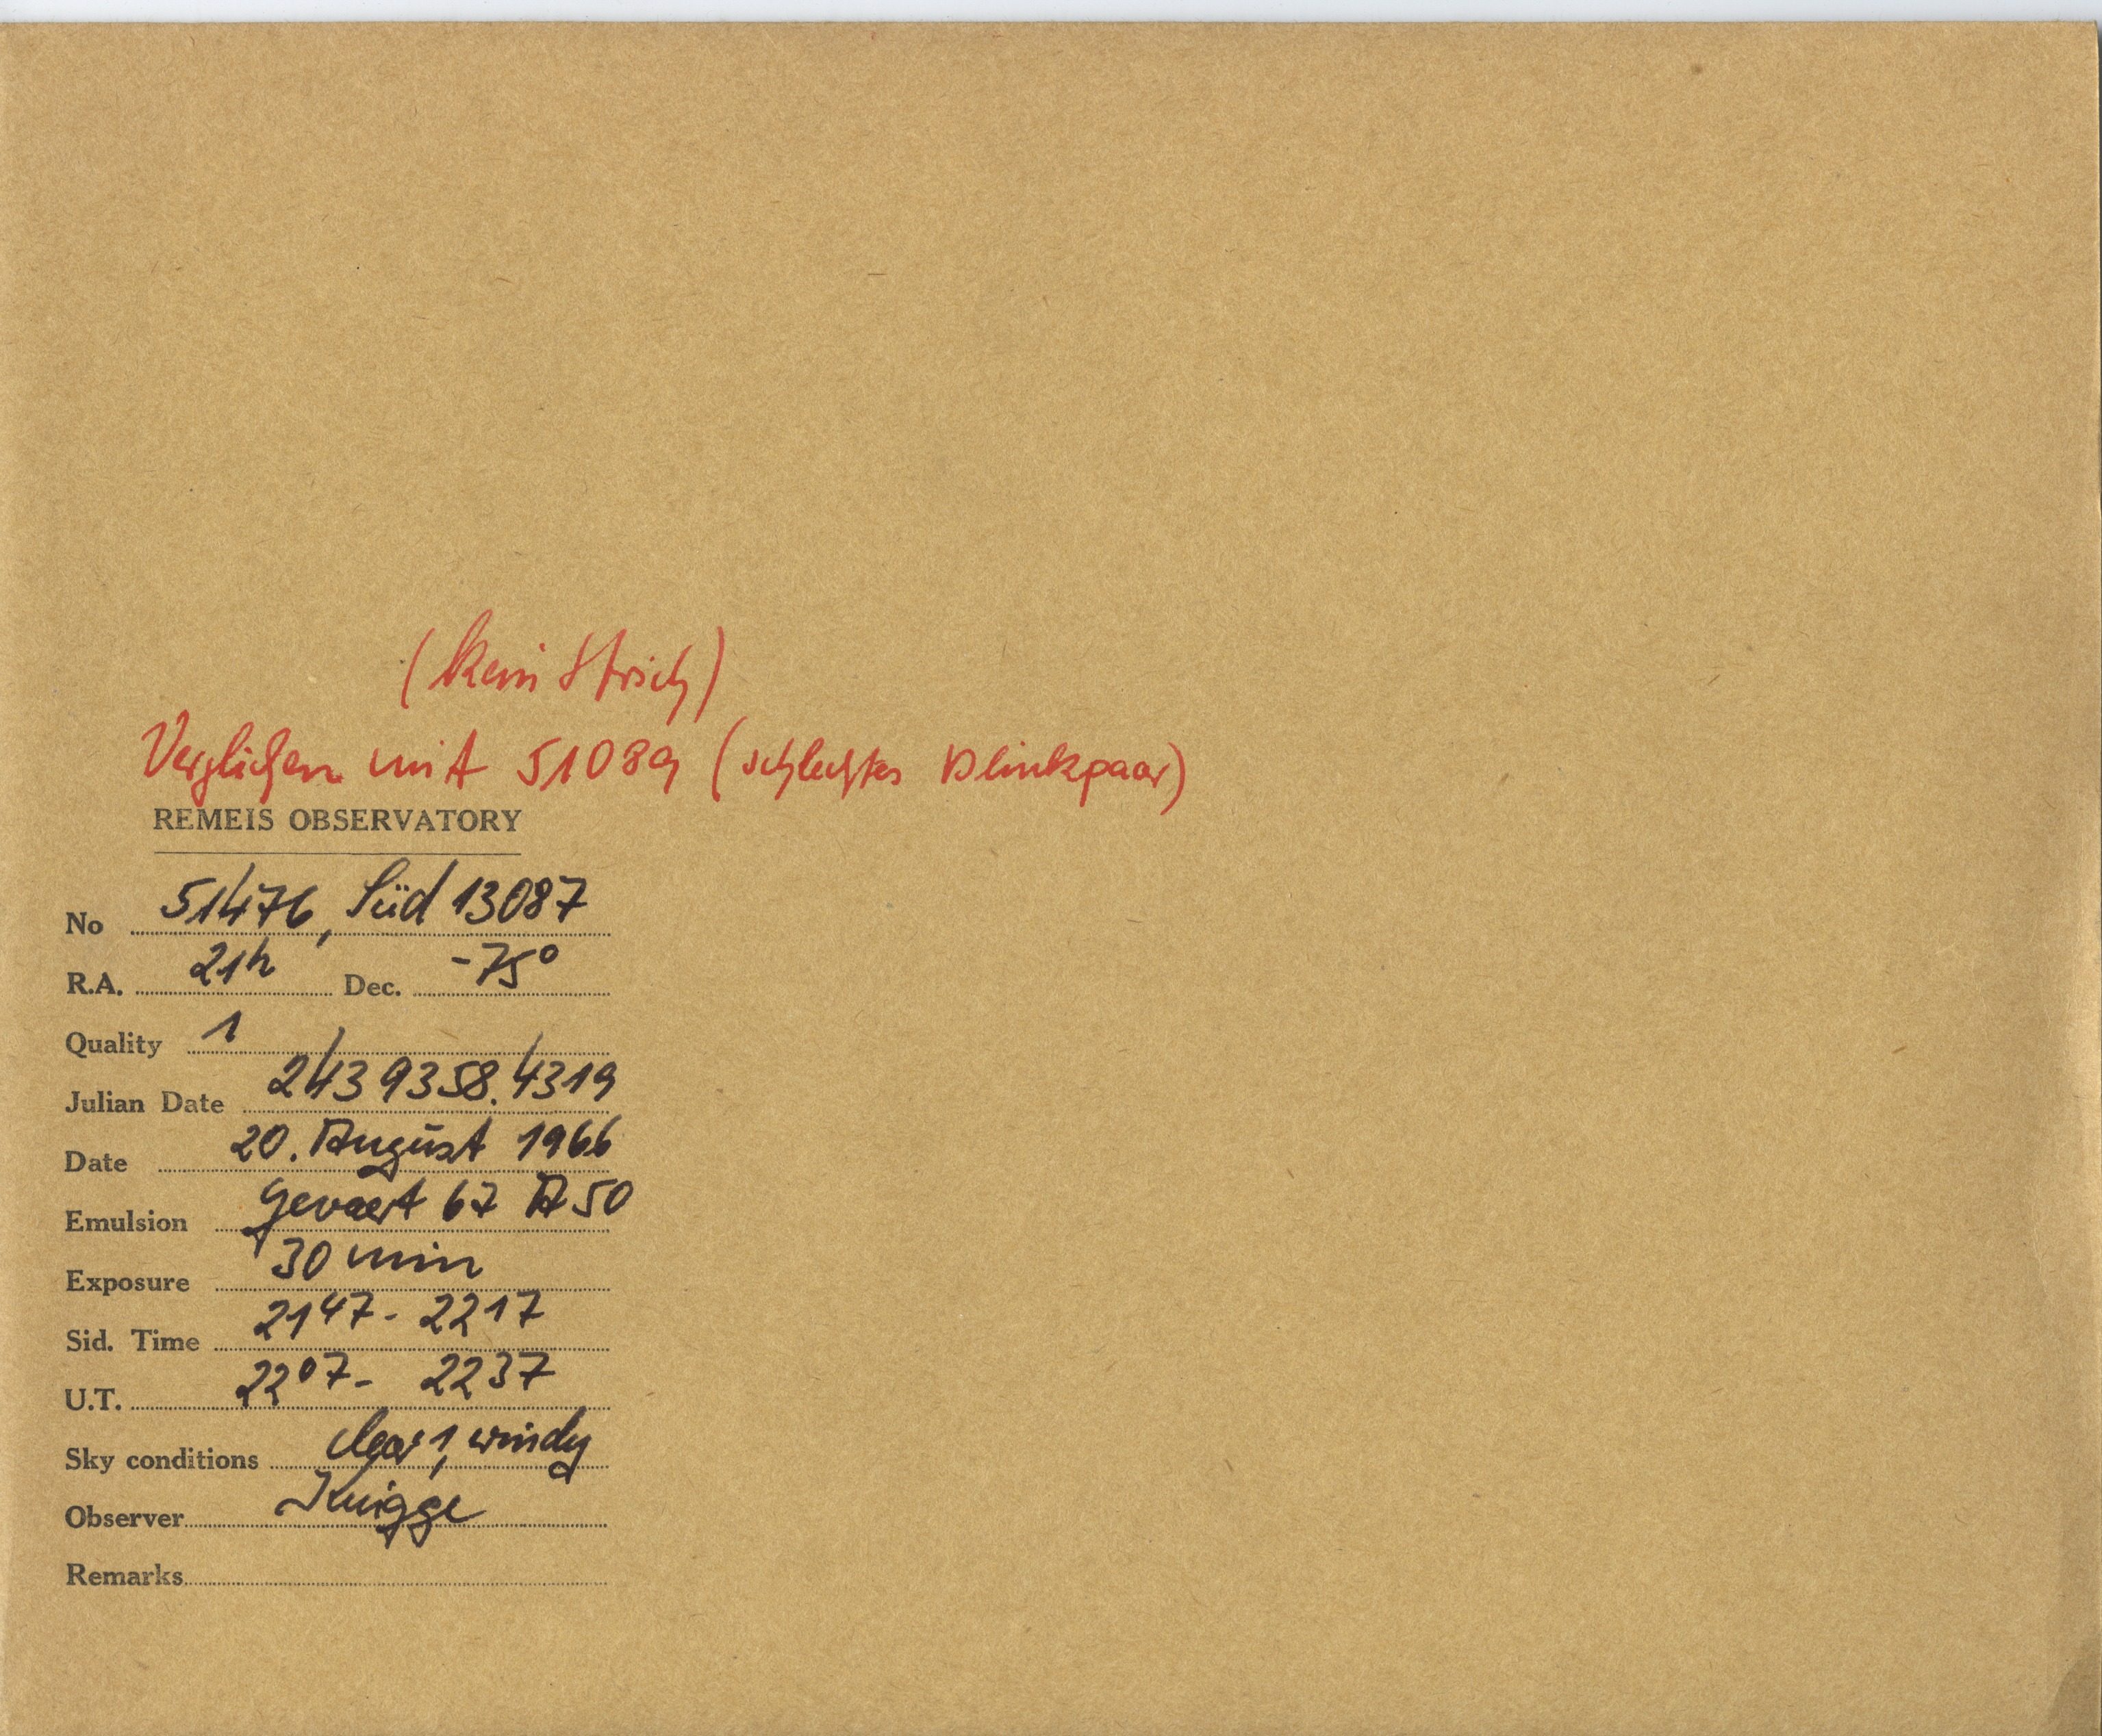 (kein Strich)
Verglichen mit 51089 (schlechtes Blinkpaar)
REMEIS OBSERVATORY
No 51476, Süd 13087
R.A. 21h Dec. -75°
Quality 1
Julian Date 2439358.4319
Date 20. August 1966
Emulsion Gevaert 67 A 50
Exposure 30 min
Sid. Time 21 47 - 22 17
U.T. 22 07 - 22 37
Sky conditions clear 1, windy
Observer Knigge
Remarks